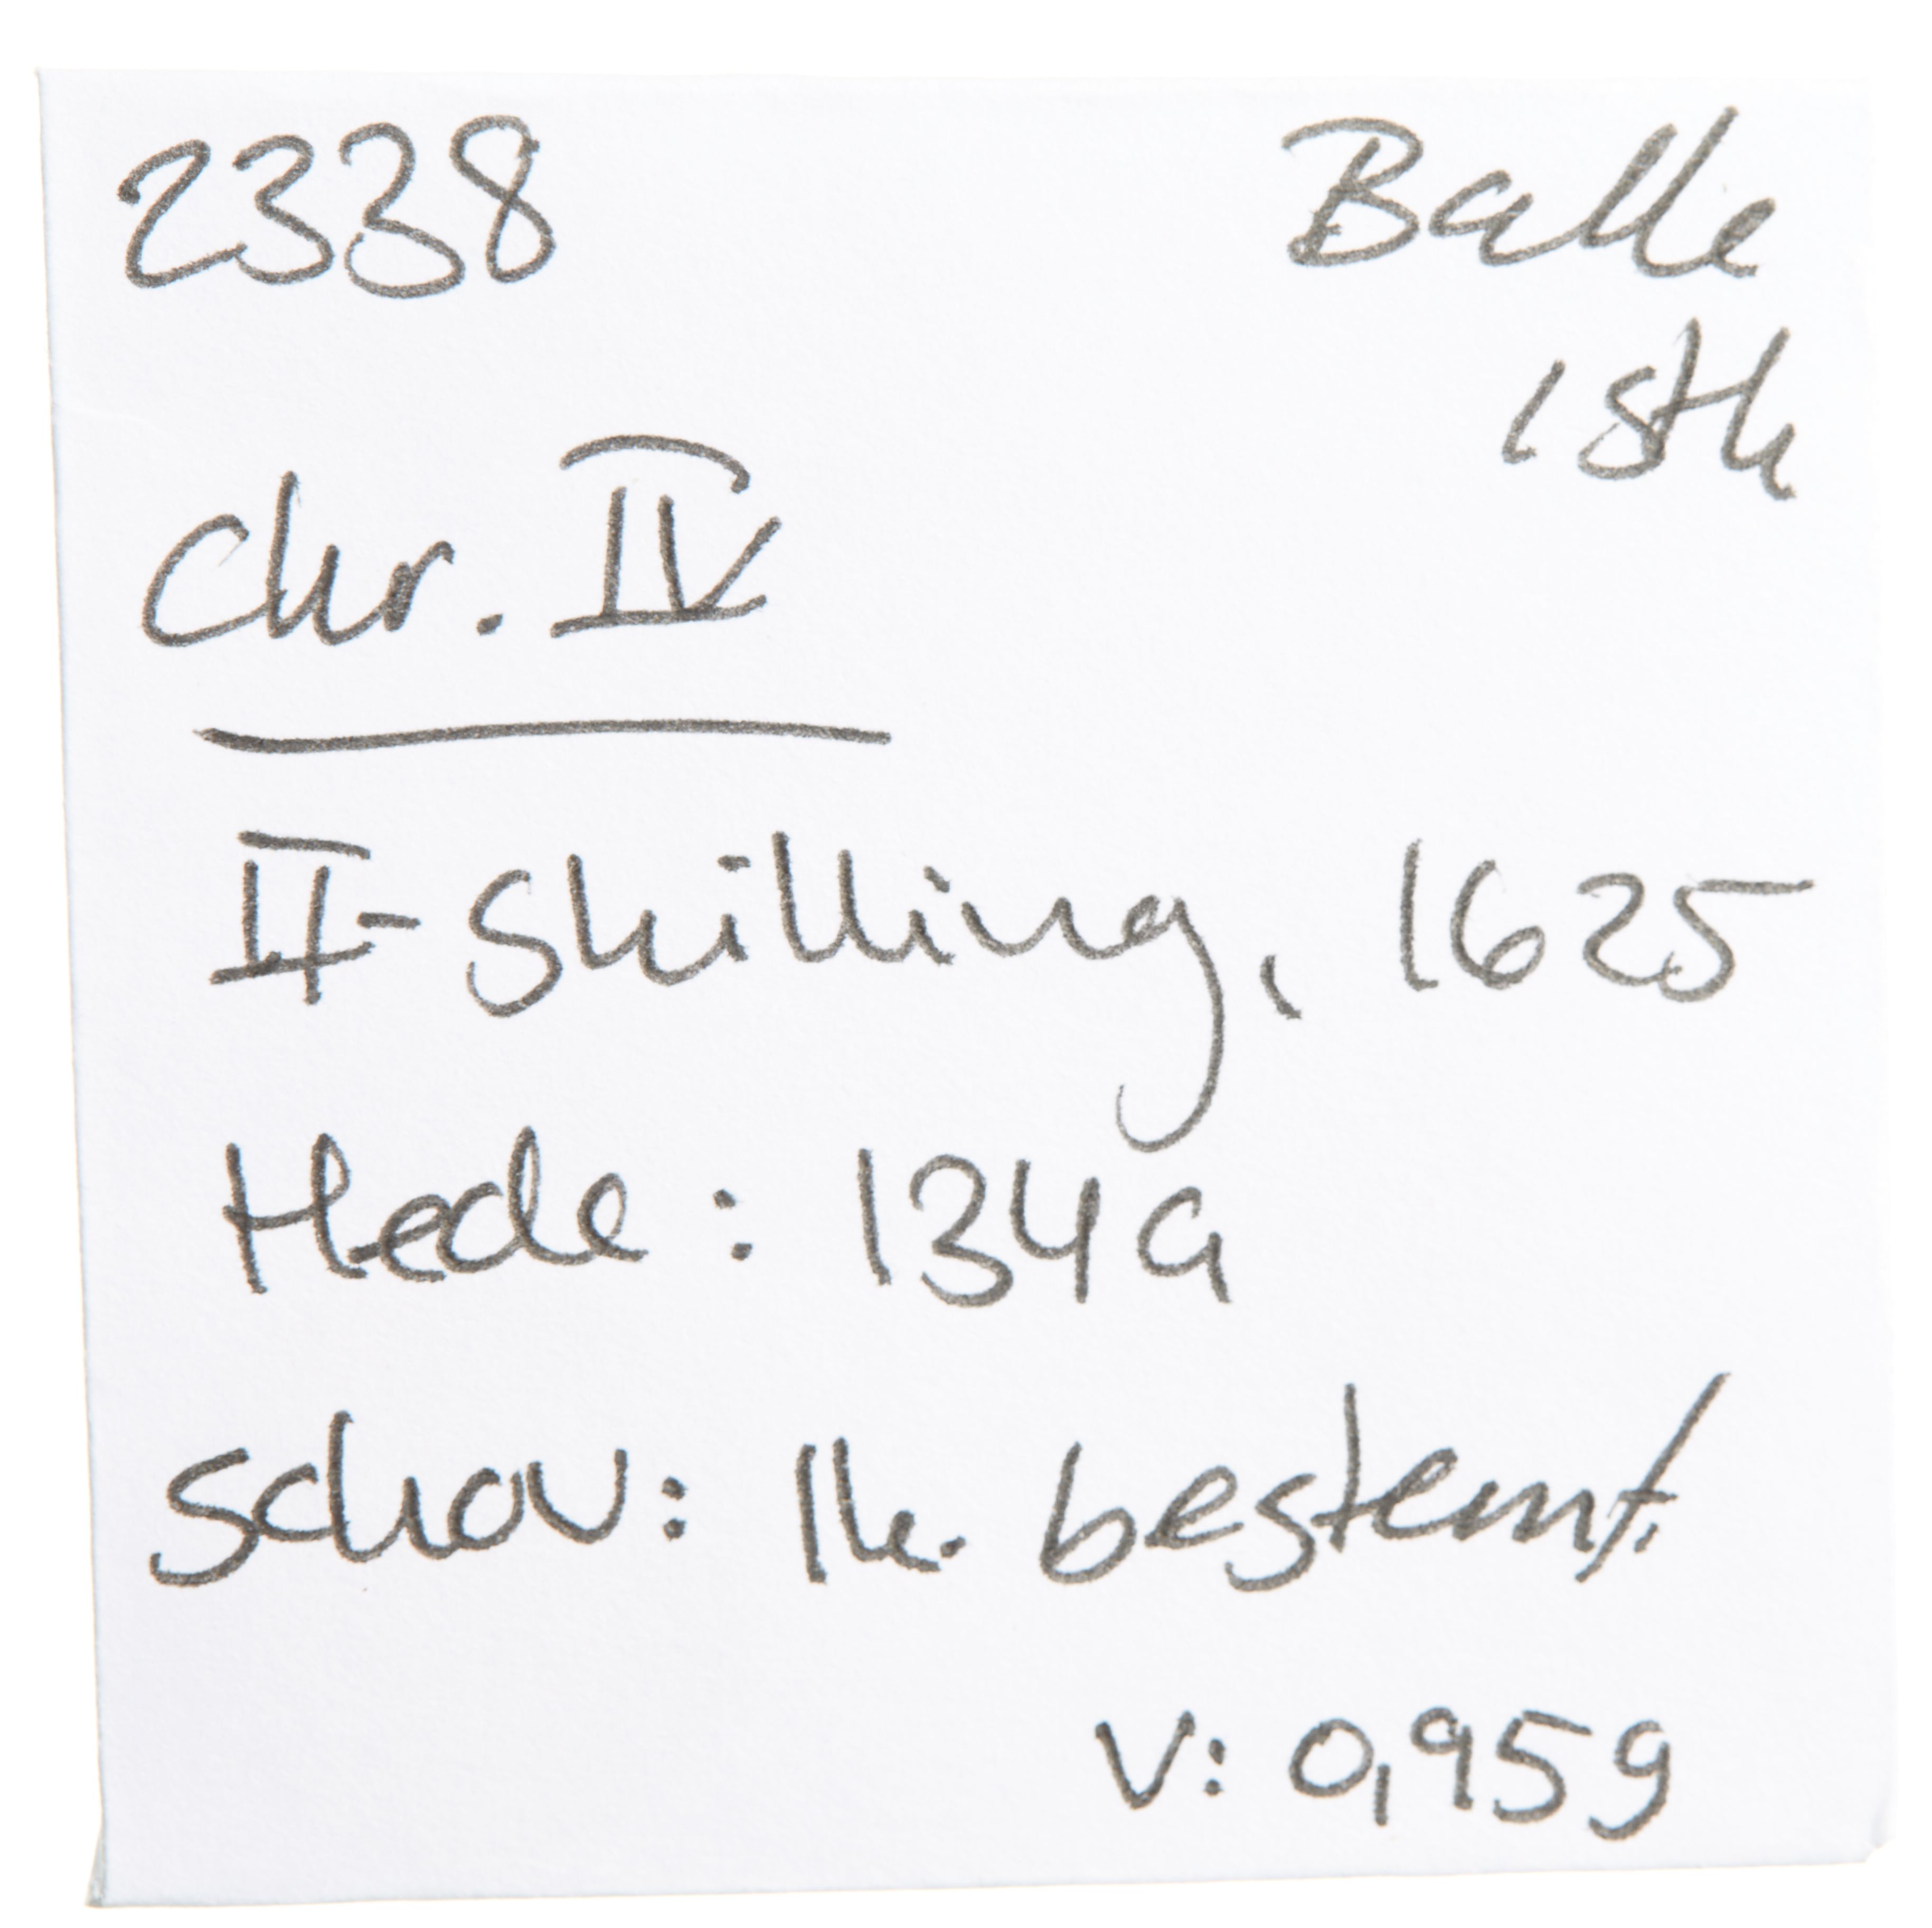 2338
Balle
1 stk
Chr. IV
II-Skilling, 1625
Hede: 134a
Schou: Ik. bestemt
V: 0,95g